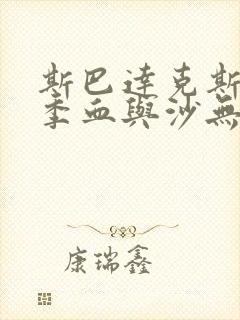 斯巴達克斯
季血與沙無
康瑞鑫